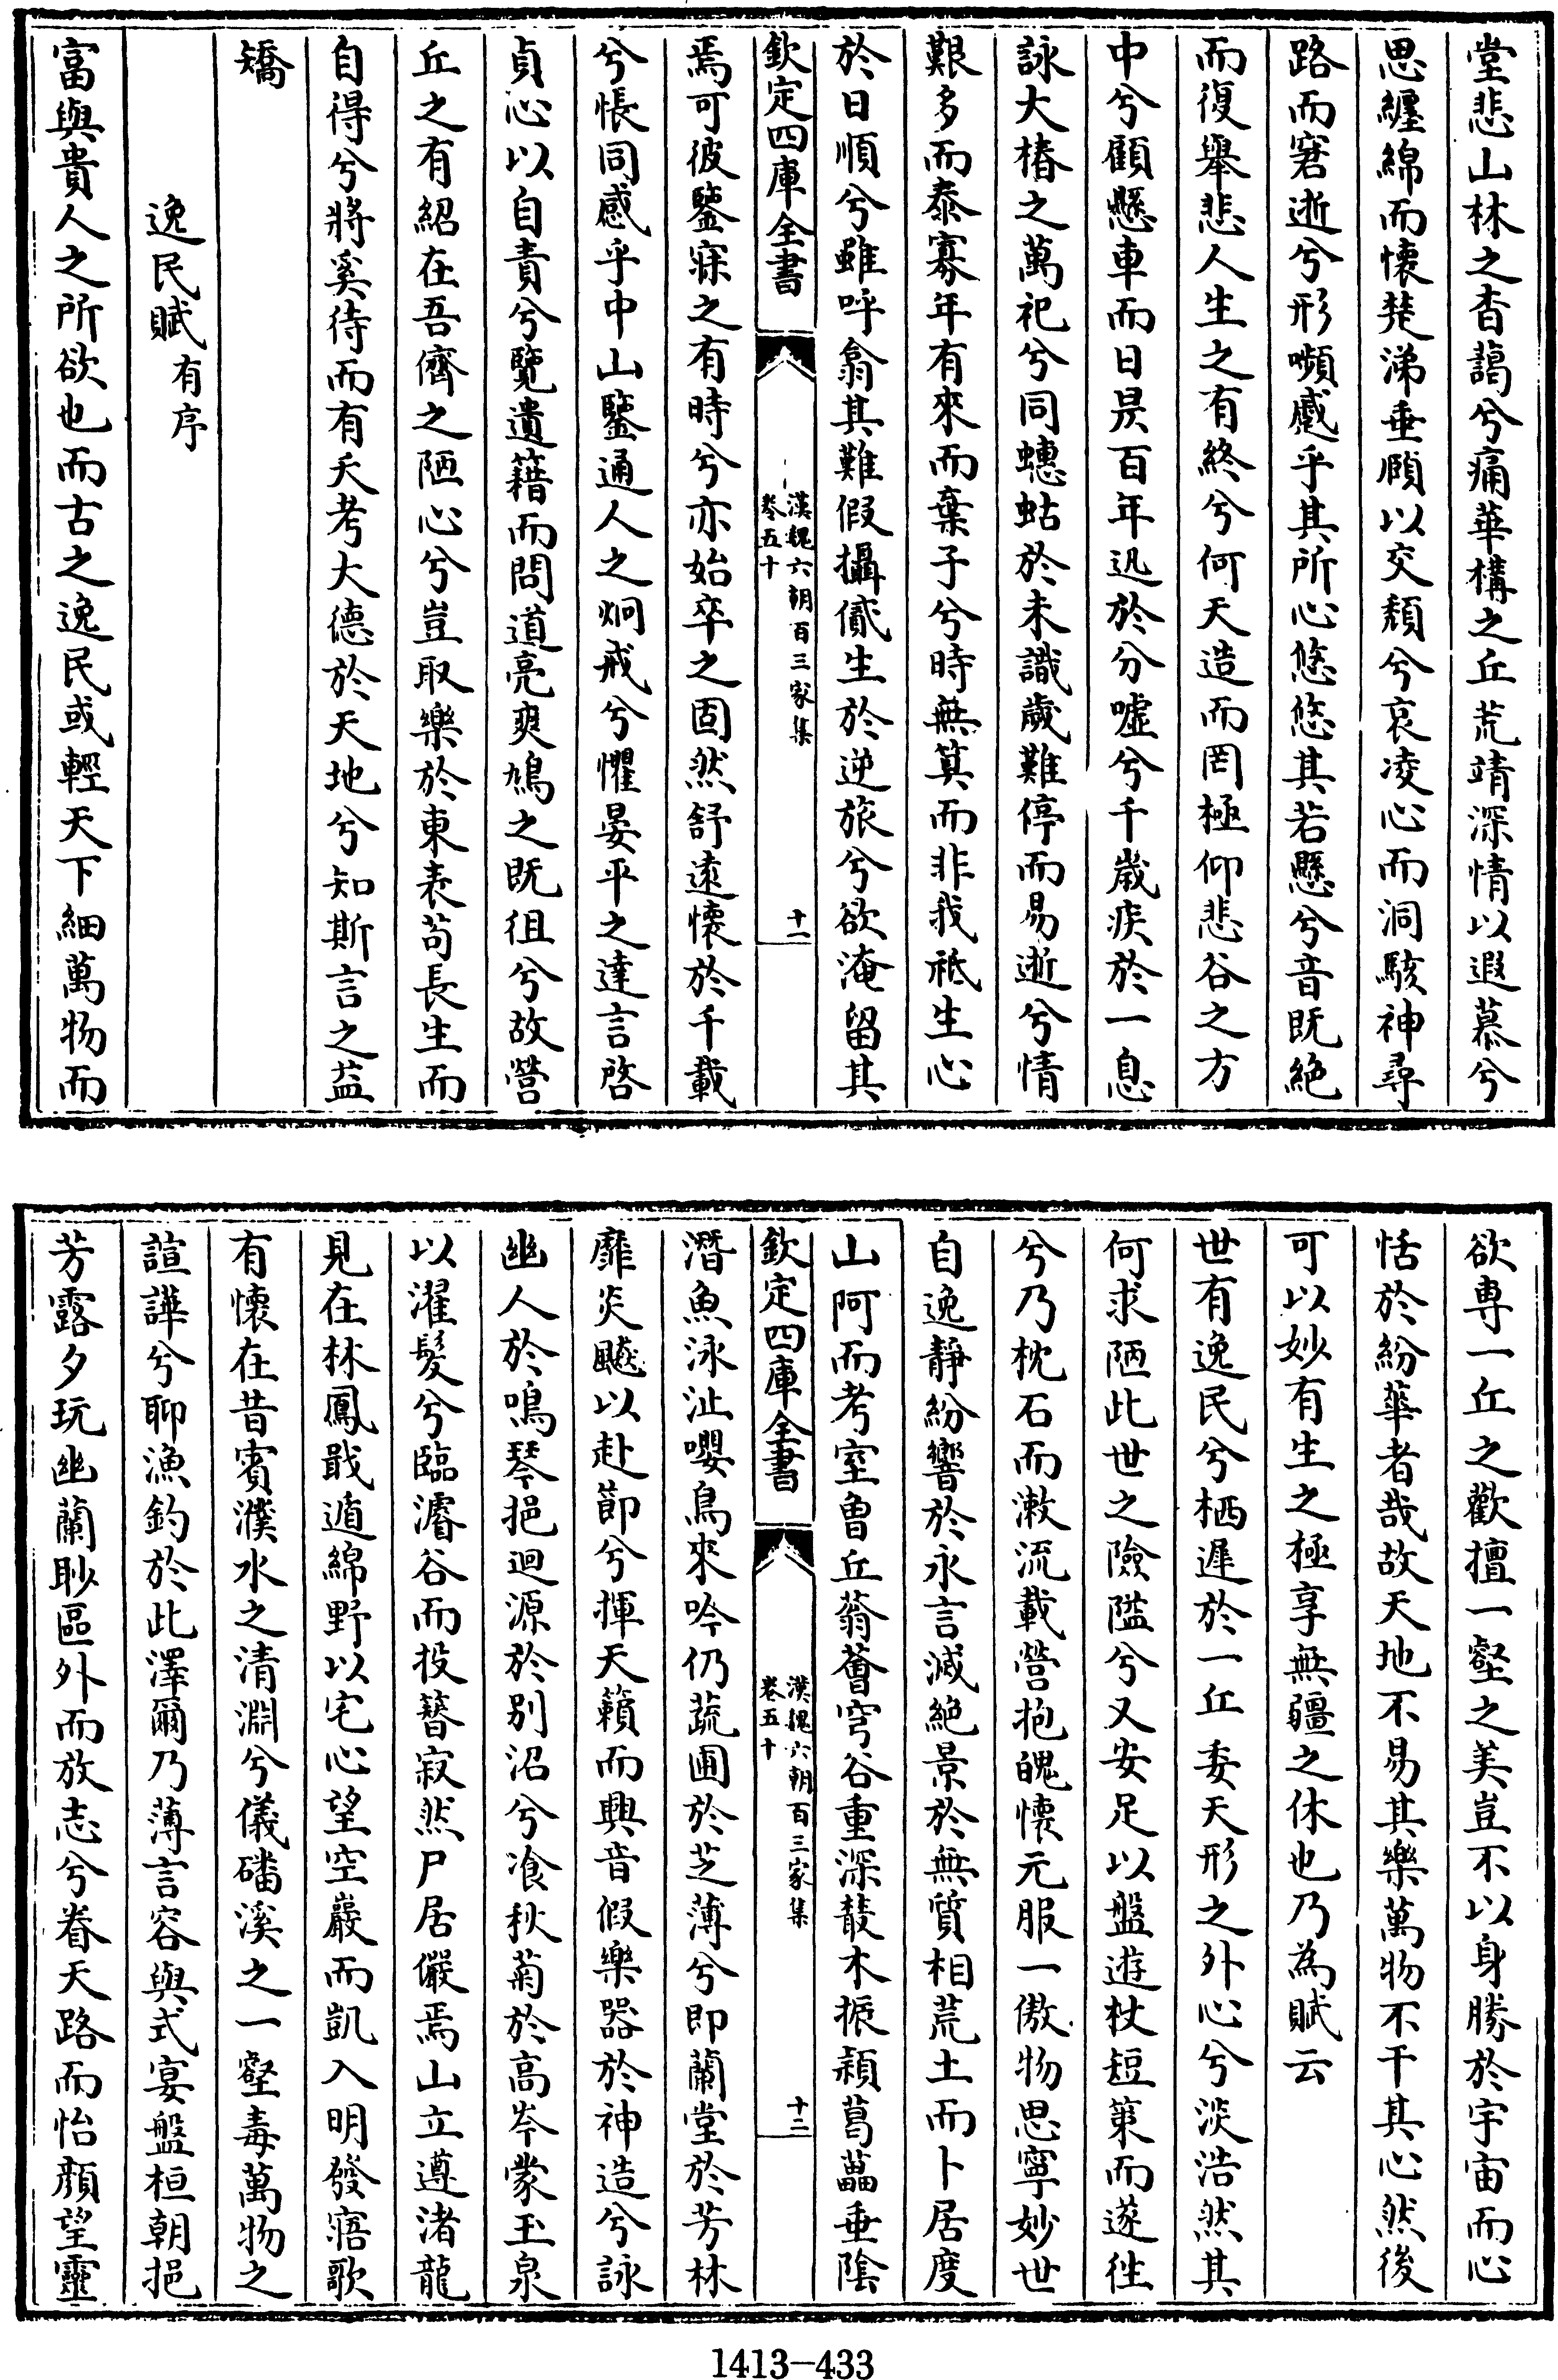 堂悲山林之杳藹兮痛華構之丘荒靖深情以遐慕兮
思纏綿而懷楚涕垂頤以交頹兮哀凌心而洞駭神尋
路而窘逝兮形嚬蹙乎其所心悠悠其若懸兮音既絶
而復舉悲人生之有終兮何天造而罔極仰悲谷之方
中兮顧懸車而日昃百年迅於分噓兮千嵗疾於一息
詠大椿之萬祀兮同蟪蛄於未識歲難停而易逝兮情
艱多而泰寡年有來而棄予兮時無筭而非我祗生心
於日順兮雖呼翕其難假攝貳生於逆旅兮欲淹留其
欽定四庫全書
漢魏六朝百三家集
卷五十
十一
焉可彼鑒寐之有時兮亦始卒之固然舒遠懷於千載
兮悵同感乎中山鑒通人之炯戒兮懼晏平之達言啓
貞心以自責兮覽遺籍而問道亮爽鳩之既徂兮故營
丘之有紹在吾儕之陋心兮豈取樂於東表苟長生而
自得兮將奚待而有夭考大德於天地兮知斯言之益
矯
逸民賦有序
富與貴人之所欲也而古之逸民或輕天下細萬物而
欲専一丘之歡擅一壑之美豈不以身勝於宇宙而心
恬於紛華者哉故天地不易其樂萬物不干其心然後
可以妙有生之極享無疆之休也乃為賦云
世有逸民兮栖遲於一丘委天形之外心兮淡浩然其
何求陋此世之險隘兮又安足以盤遊杖短䇿而遂徃
兮乃枕石而漱流載營抱魄懷元服一傲物思寧妙世
自逸靜紛響於永言滅絶景於無質相荒土而卜居度
山阿而考室曽丘蓊薈穹谷重深䕺木振穎葛藟垂陰
欽定四庫全書
漢魏六朝百三家集
卷五十
十二
潛魚泳沚嚶鳥來吟仍蔬圃於芝薄兮即蘭堂於芳林
靡炎飈以赴節兮揮天籟而興音假樂器於神造兮詠
幽人於鳴琴挹迴源於别沼兮飡秋菊於高岑蒙玉泉
以濯髮兮臨濬谷而投簪寂然尸居儼焉山立遵渚龍
見在林鳳戢遁綿野以宅心望空巖而凱入明發寤歌
有懷在昔賓濮水之清淵兮儀磻溪之一壑毒萬物之
諠譁兮聊漁釣於此澤爾乃薄言容與式宴盤桓朝挹
芳露夕玩幽蘭眇區外而放志兮眷天路而怡顔望靈
1413—433